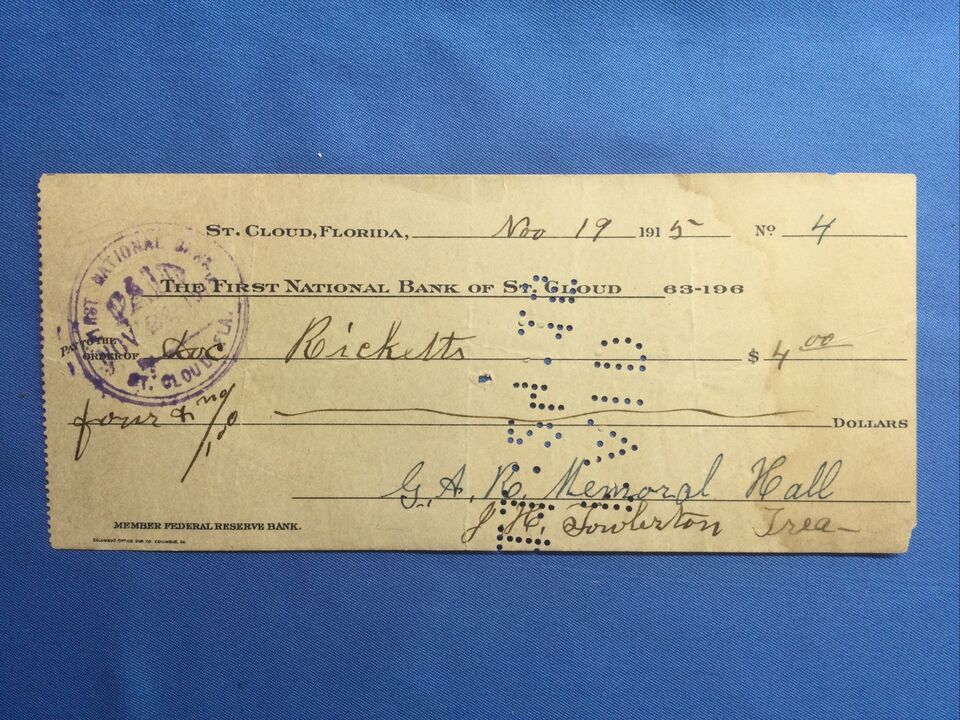 ST. CLOUD, FLORIDA, Nov 19 1915 No 4
THE FIRST NATIONAL BANK OF ST. CLOUD 63-196
PAY TO THE ORDER OF Doc Ricketts $ 4 00
four & no/100 DOLLARS
G. A. R. Memoral Hall
J H. Towlerton Trea-
MEMBER FEDERAL RESERVE BANK.
FIRST NATIONAL BANK
PAID
NOV
ST. CLOUD, FLA.